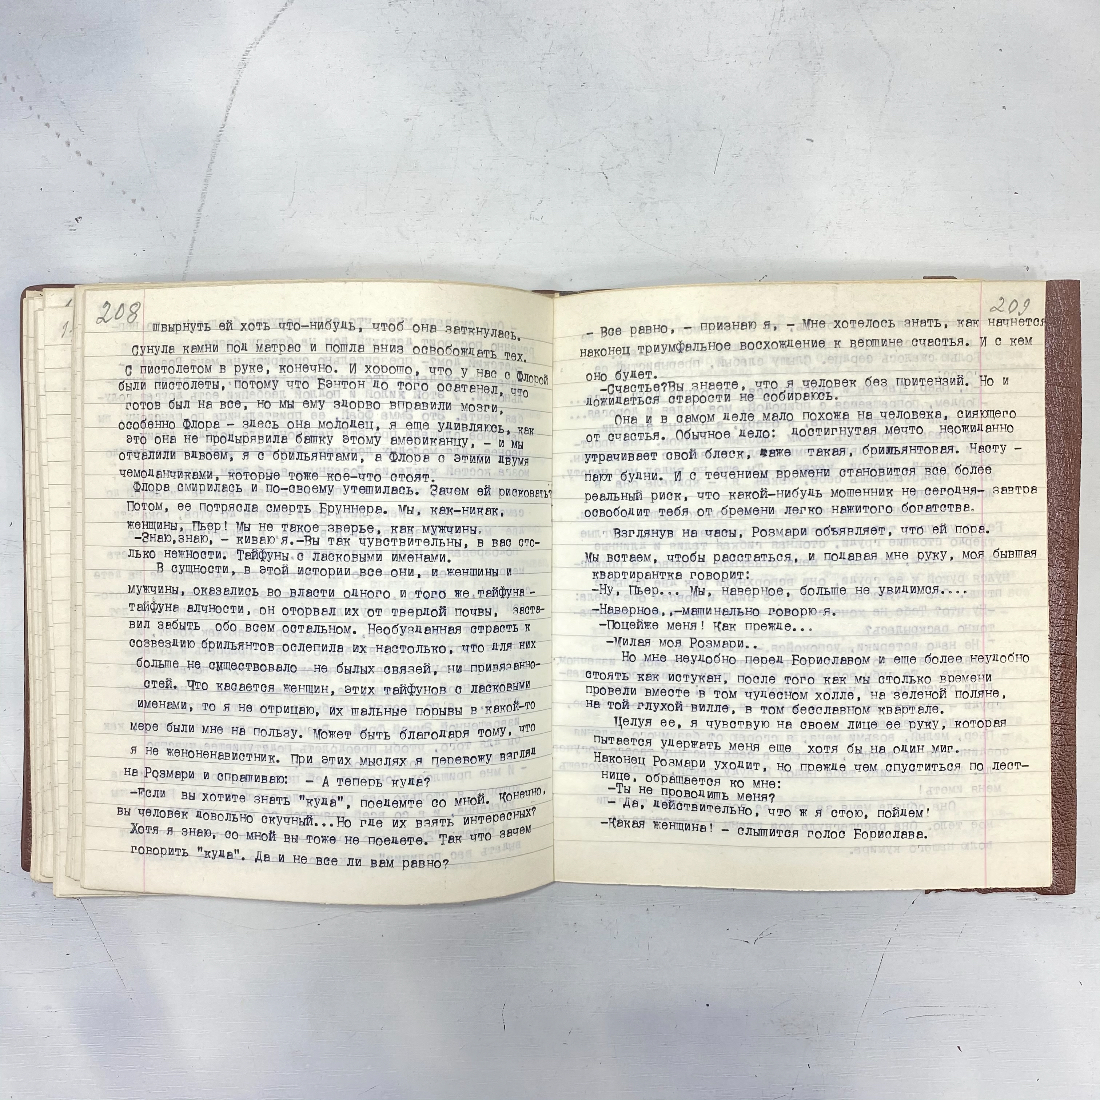 208
швырнуть ей хоть что-нибудь, чтоб она заткнулась.
Сунула камни под матрас и пошла вниз освобождать тех.
С пистолетом в руке, конечно. И хорошо, что у нас с Флорой
были пистолеты, потому что Бэнтон до того осатанел, что
готов был на все, но мы ему здорово вправили мозги,
особенно Флора - здесь она молодец, я еще удивляюсь, как
это она не продырявила башку этому американцу, - и мы
отчалили вдвоем, я с брильянтами, а Флора с этими двумя
чемоданчиками, которые тоже кое-что стоят.
Флора смирилась и по-своему утешилась. Зачем ей рисковать?
Потом, ее потрясла смерть Бруннера. Мы, как-никак,
женщины, Пьер! Мы не такое зверье, как мужчины.
-Знаю,знаю, - киваю я.-Вы так чувствительны, в вас сто-
лько нежности. Тайфуны с ласковыми именами.
В сущности, в этой истории все они, и женщины и
мужчины, оказались во власти одного и того же тайфуна -
тайфуна алчности, он оторвал их от твердой почвы, заста-
вил забыть обо всем остальном. Необузданная страсть к
созвездию брильянтов ослепила их настолько, что для них
больше не существовало не былых связей, ни привязанно-
стей. Что касается женщин, этих тайфунов с ласковыми
именами, то я не отрицаю, их шальные порывы в какой-то
мере были мне на пользу. Может быть благодаря тому, что
я не женоненавистник. При этих мыслях я перевожу взгляд
на Розмари и спрашиваю: - А теперь куда?
-Если вы хотите знать "куда", поедемте со мной. Конечно,
вы человек довольно скучный...Но где их взять интересных?
Хотя я знаю, со мной вы тоже не поедете. Так что зачем
говорить "куда". Да и не все ли вам равно?
209
- Все равно, - признаю я, - Мне хотелось знать, как начнется
наконец триумфальное восхождение к вершине счастья. И с кем
оно будет.
-Счастье?Вы знаете, что я человек без притензий. Но и
дожидаться старости не собираюсь.
Она и в самом деле мало похожа на человека, сияющего
от счастья. Обычное дело: достигнутая мечто неожиданно
утрачивает свой блеск, даже такая, брильянтовая. Насту -
пают будни. И с течением времени становится все более
реальный риск, что какой-нибудь мошенник не сегодня- завтра
освободит тебя от бремени легко нажитого богатства.
Взглянув на часы, Розмари объявляет, что ей пора.
Мы встаем, чтобы расстаться, и подавая мне руку, моя бывшая
квартирантка говорит:
-Ну, Пьер... Мы, наверное, больше не увидимся....
-Наверное..,-машинально говорю-я.
-Поцейже меня! Как прежде...
-Милая моя Розмари..
Но мне неудобно перед Бориславом и еще более неудобно
стоять как истукан, после того как мы столько времени
провели вместе в том чудесном холле, на зеленой поляне,
на той глухой вилле, в том бесславном квартале.
Целуя ее, я чувствую на своем лице ее руку, которая
пытается удержать меня еще хотя бы на один миг.
Наконец Розмари уходит, но прежде чем спуститься по лест-
нице, обращается ко мне:
-Ты не проводишь меня?
- Да, действительно, что ж я стою, пойдем!
-Какая женщина! - слышится голос Борислава.